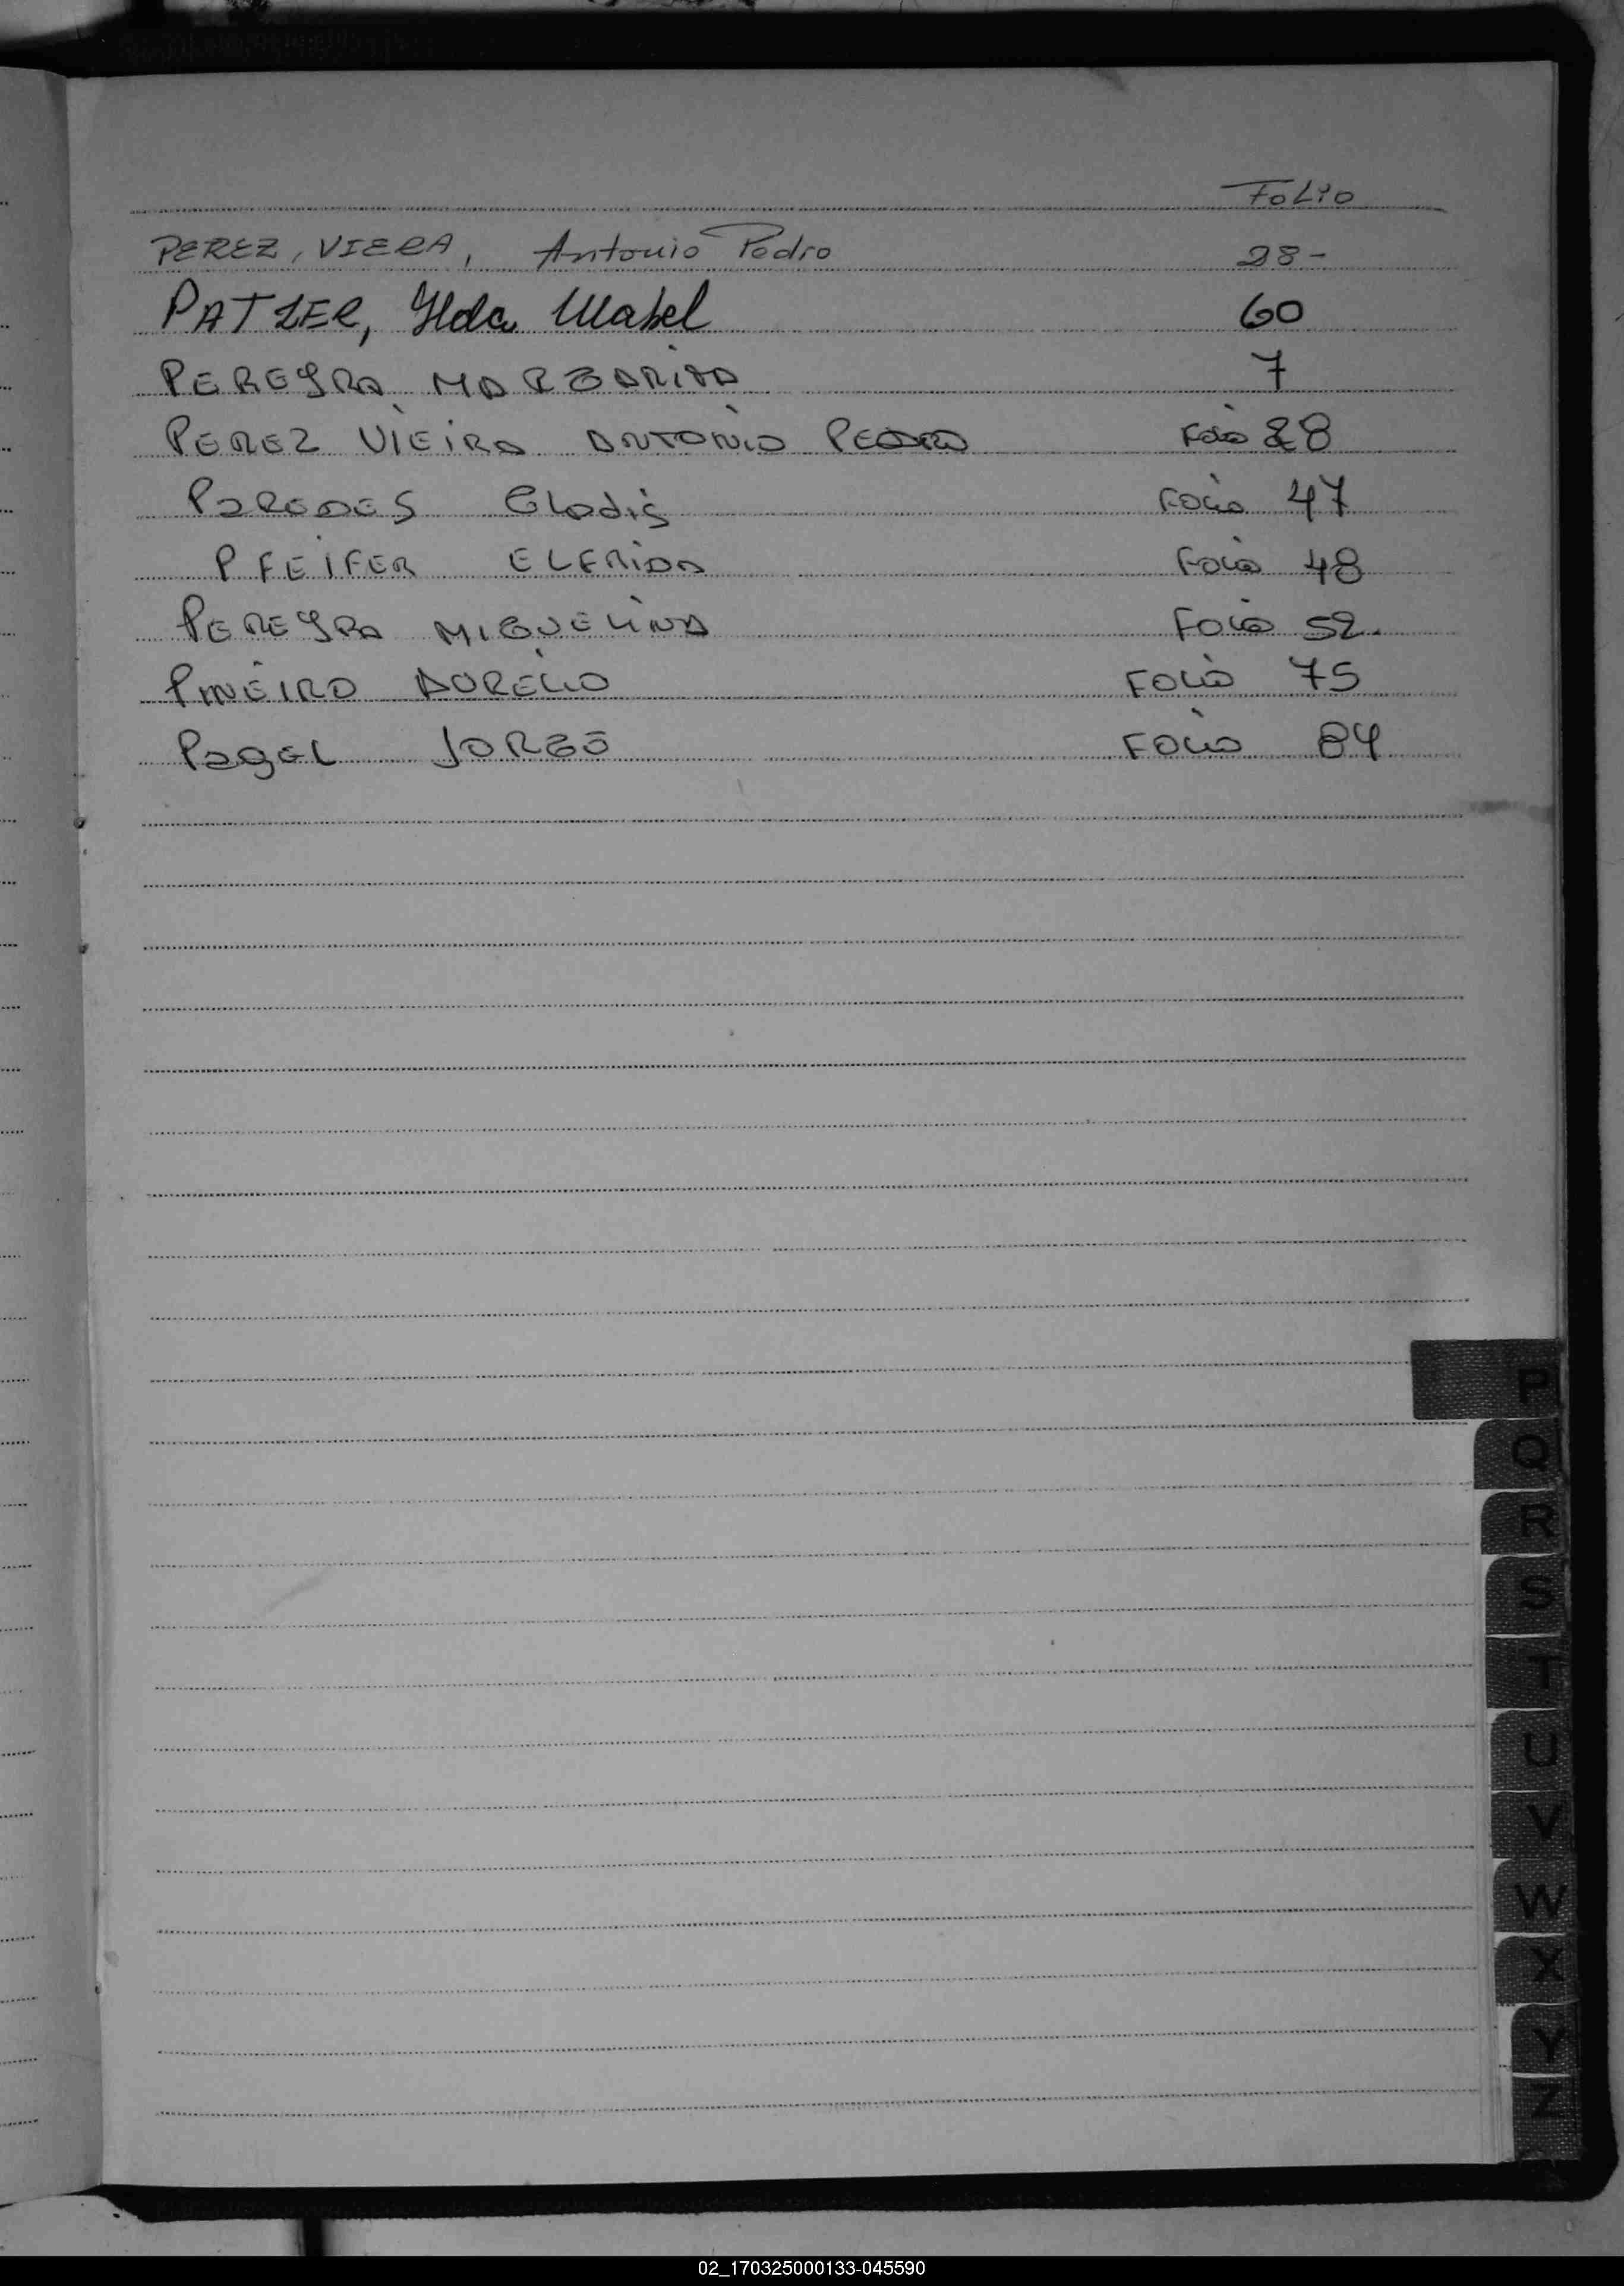 FOLIO
PEREZ, VIERA, Antonio Pedro 28-
PATZER, Ilda Mabel 60
PEREYRA MARGARITA 7
PEREZ VIEIRA ANTONIO PEDRO Folio 28
PAREDES Gladis Folio 47
PFEIFER ELFRIDA Folio 48
PEREYRA MIGUELINA Folio 52.
PINEIRO AURELIO FOLIO 75
PAGEL JORGE FOLIO 84
P
Q
R
S
T
U
V
W
X
Y
Z
02_170325000133-045590